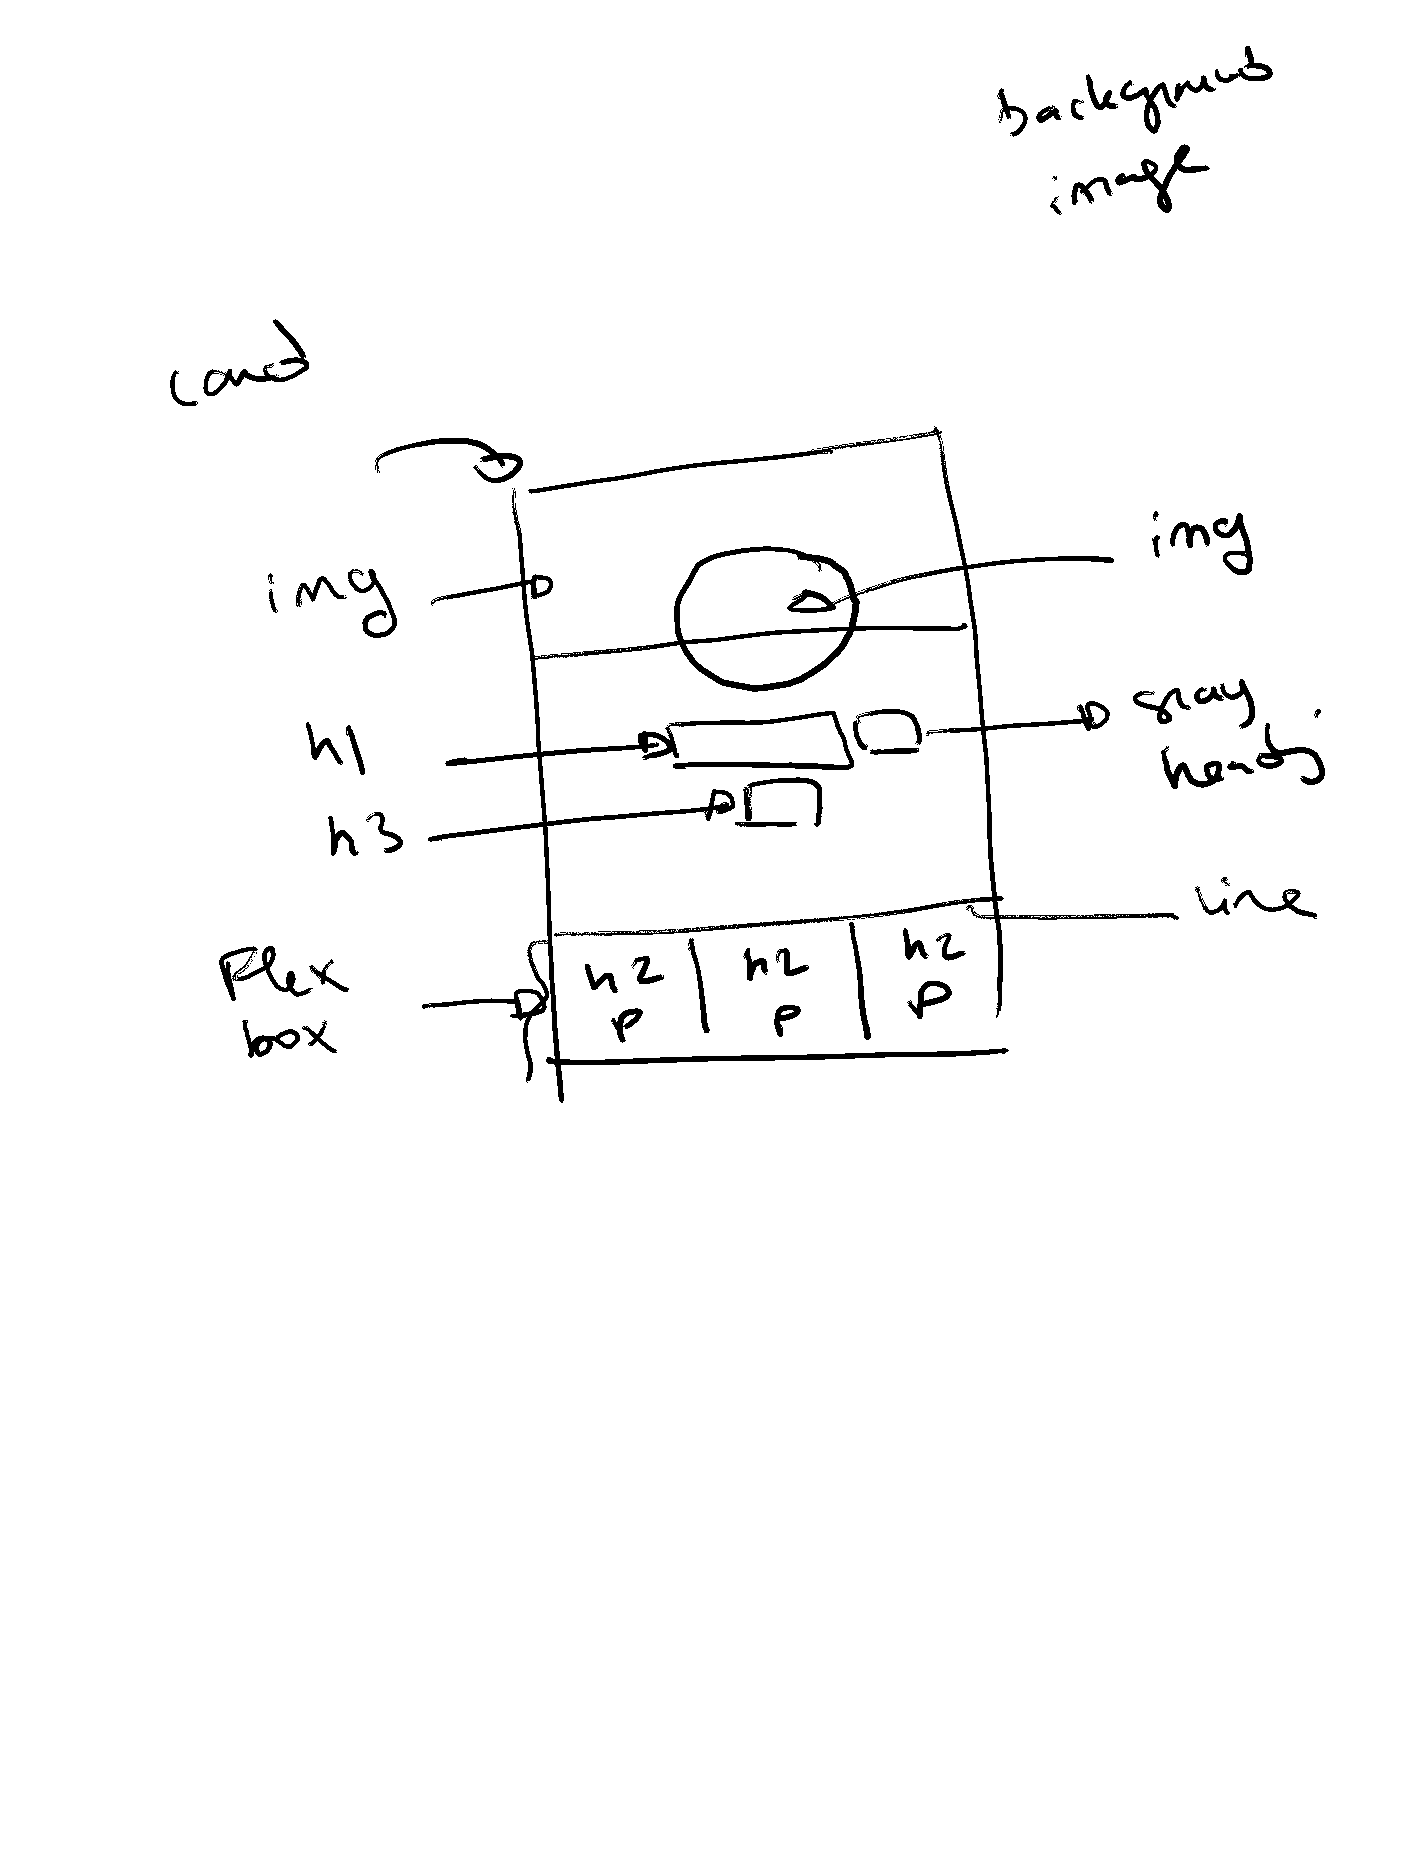 background
image
card
img
img
h1
gray
heading
h3
line
Flex
box
h2
h2
h2
p
p
p